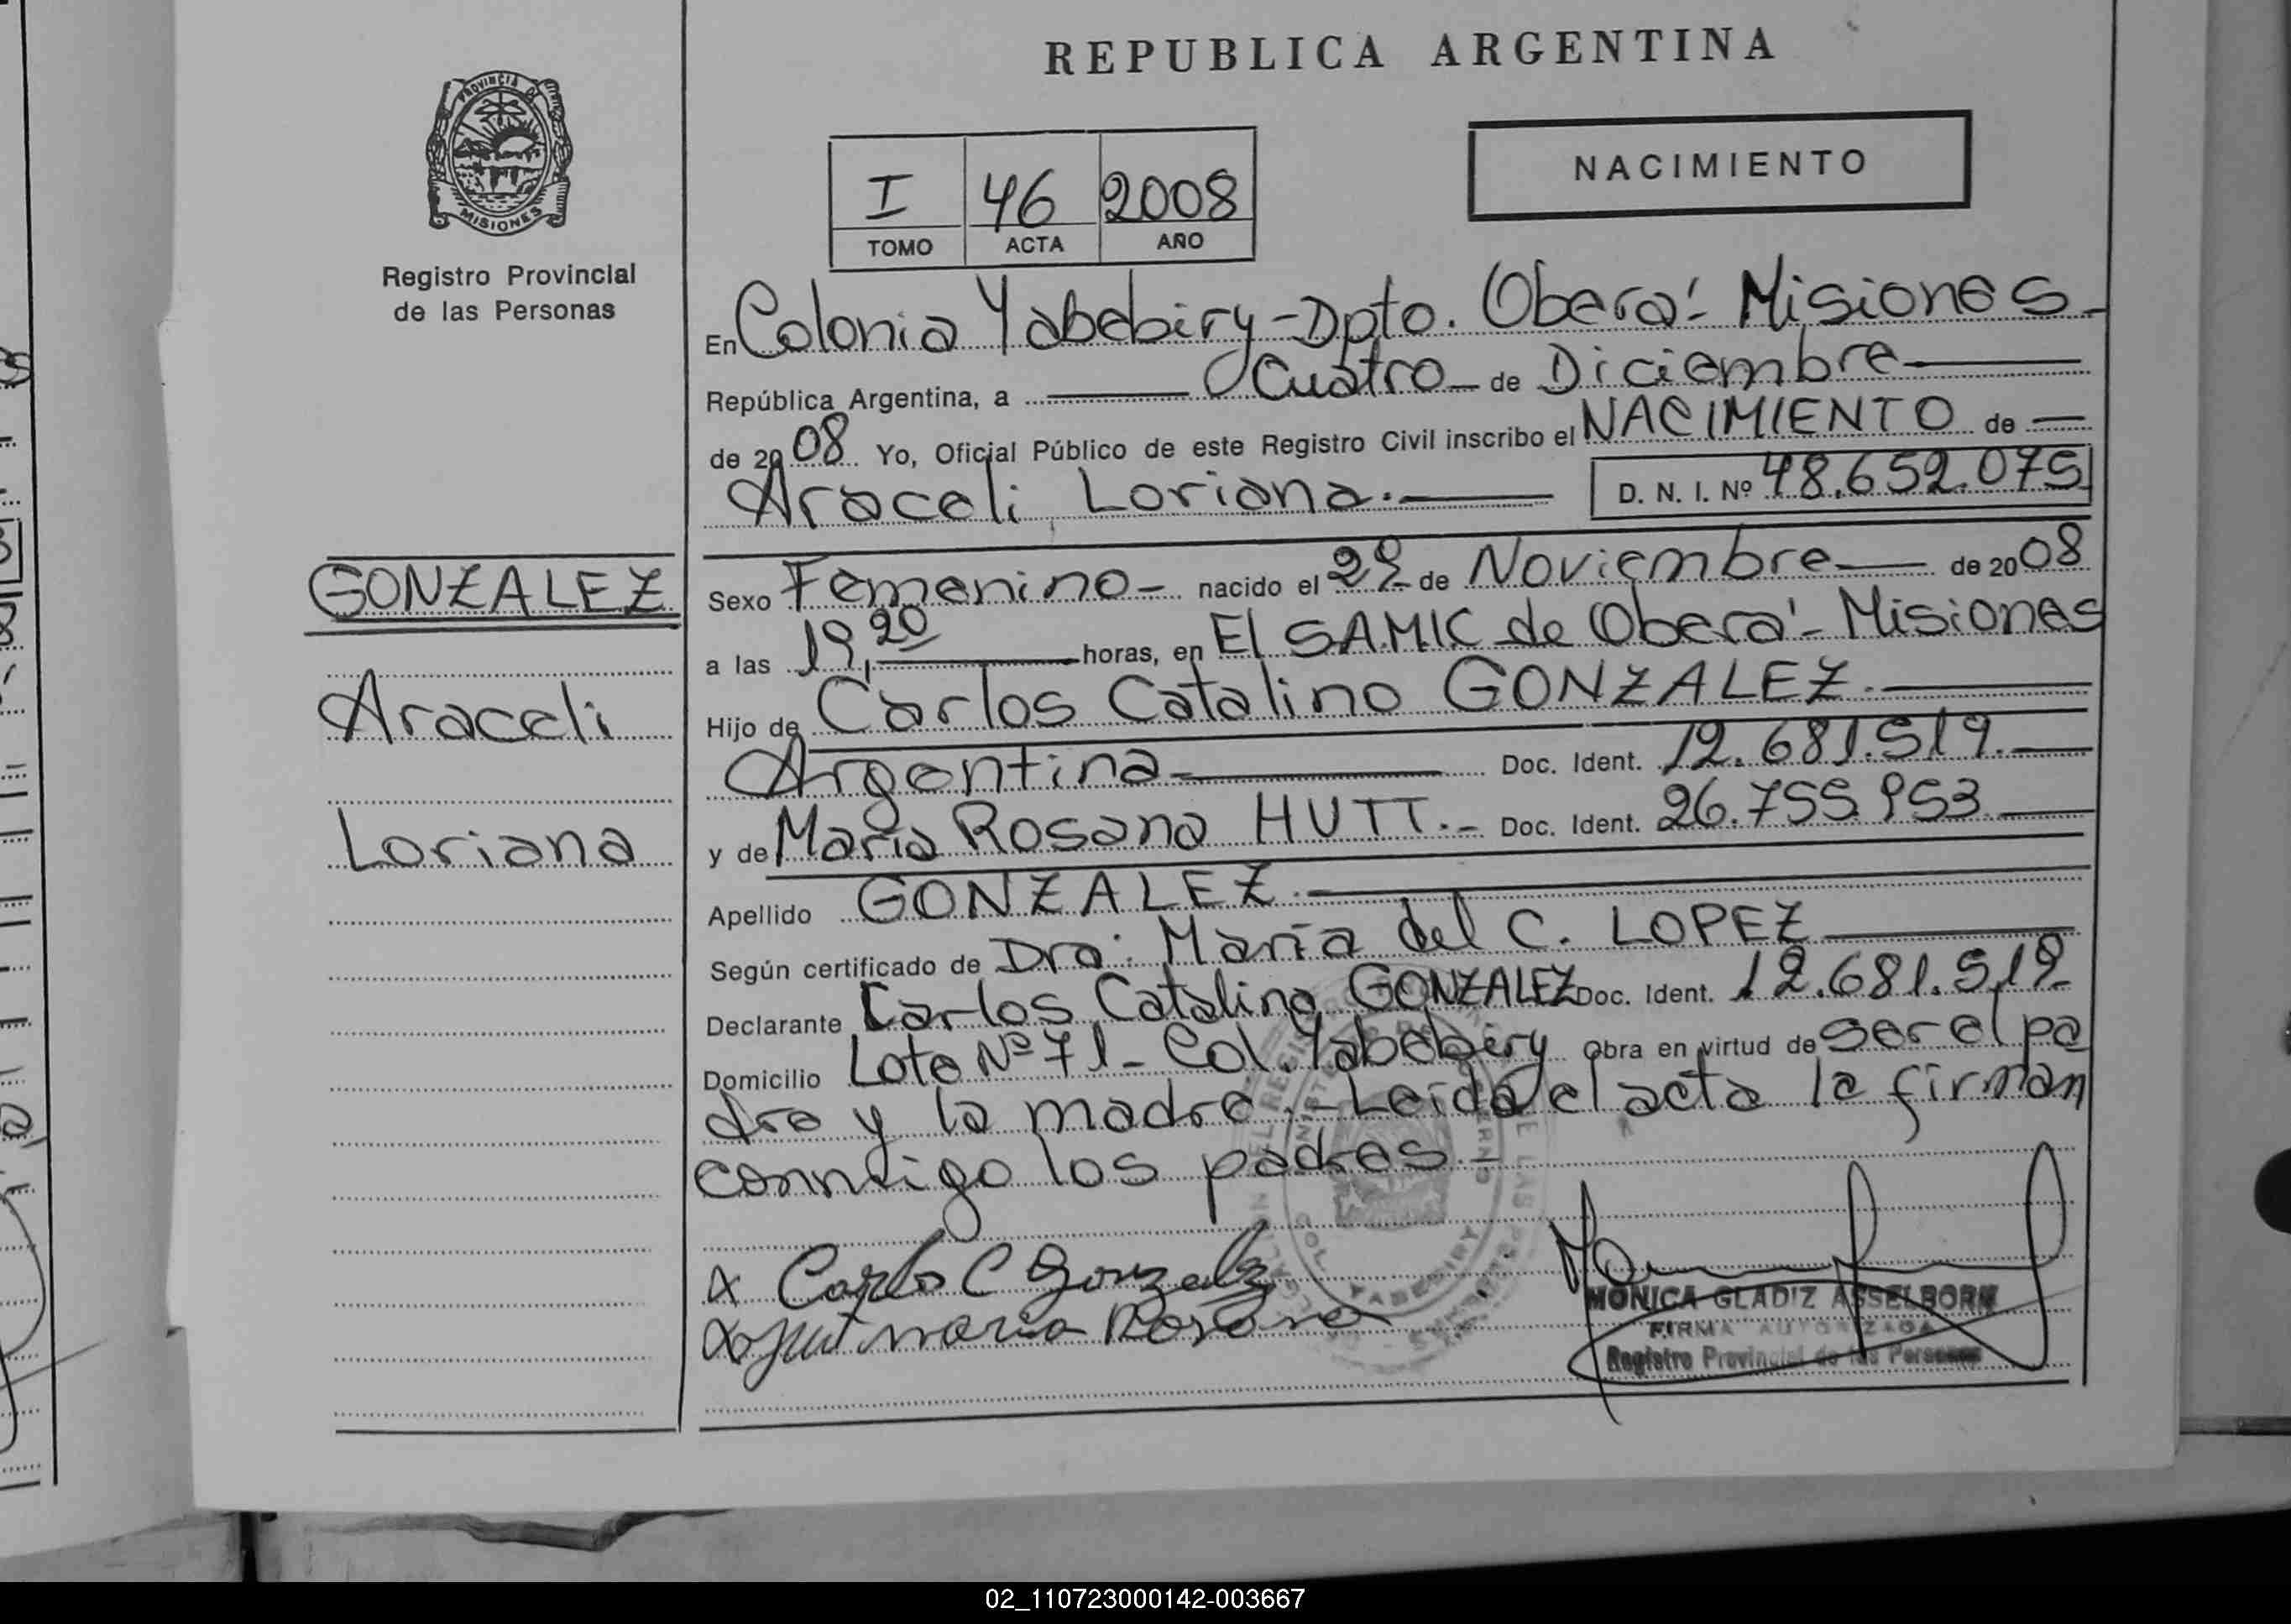 REPUBLICA ARGENTINA
PROVINCIA DE MISIONES
Registro Provincial
de las Personas
NACIMIENTO
I 46 2008
TOMO ACTA AÑO
En Colonia Yabebiry - Dpto. Oberá - Misiones -
República Argentina, a Cuatro - de Diciembre
de 2008 Yo, Oficial Público de este Registro Civil inscribo el NACIMIENTO de
Araceli Loriana.- D. N. I. Nº 48.652.075
GONZALEZ
Araceli
Loriana
Sexo Femenino - nacido el 29 de Noviembre de 2008
a las 19,20 horas, en El SAMIC de Oberá - Misiones
Hijo de Carlos Catalino GONZALEZ.-
Argentina - Doc. Ident. 12.681.519.-
y de María Rosana HUTT.- Doc. Ident. 26.755.953
Apellido GONZALEZ.-
Según certificado de Dra: María del C. LOPEZ
Declarante Carlos Catalino GONZALEZ Doc. Ident. 12.681.519
Domicilio Lote Nº 71 - Col. Yabebiry Obra en virtud de ser el pa
dre y la madre.- Leída el acta la firman
conmigo los padres.-
x Carlos C Gonzalez
x Hut maria Rosana
COL. YABEBIRY
MONICA GLADIZ ASSELBORN
FIRMA AUTORIZADA
Registro Provincial de las Personas
02_110723000142-003667